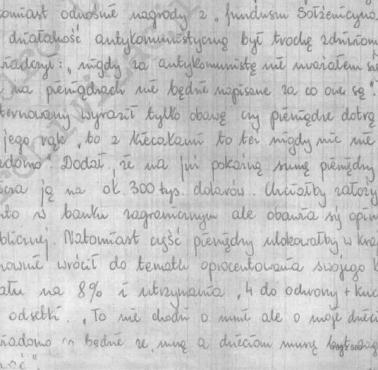 omiast odnośnie nagrody z „funduszu Sołżenicyna
działalność antykomunistyczną był trochę zdziwion
iadczył: „nigdy za antykomunistę nie uważałem si
na pieniądzach nie będzie napisane za co one są".
ternowany wyraził tylko obawę czy pieniądze dotrą
jego rąk „bo z Kiecakami to też nigdy nie nie
adomo. Dodał, że na już pokaźną sumę pieniędzy
ją na ok. 300 tys. dolarów. Chciałby założy
to w banku zagranicznym ale obawia się opin
blicznej. Natomiast część pieniędzy ulokowałby w kra
nownie wrócił do tematu oprocentowania swojego k
atu na 8% i utrzymania „4 do ochrony + kuc
odsetki. „To nie chodzi o mnie ale o moje dzieci
iadomo co będzie ze mną a dzieciom muszę